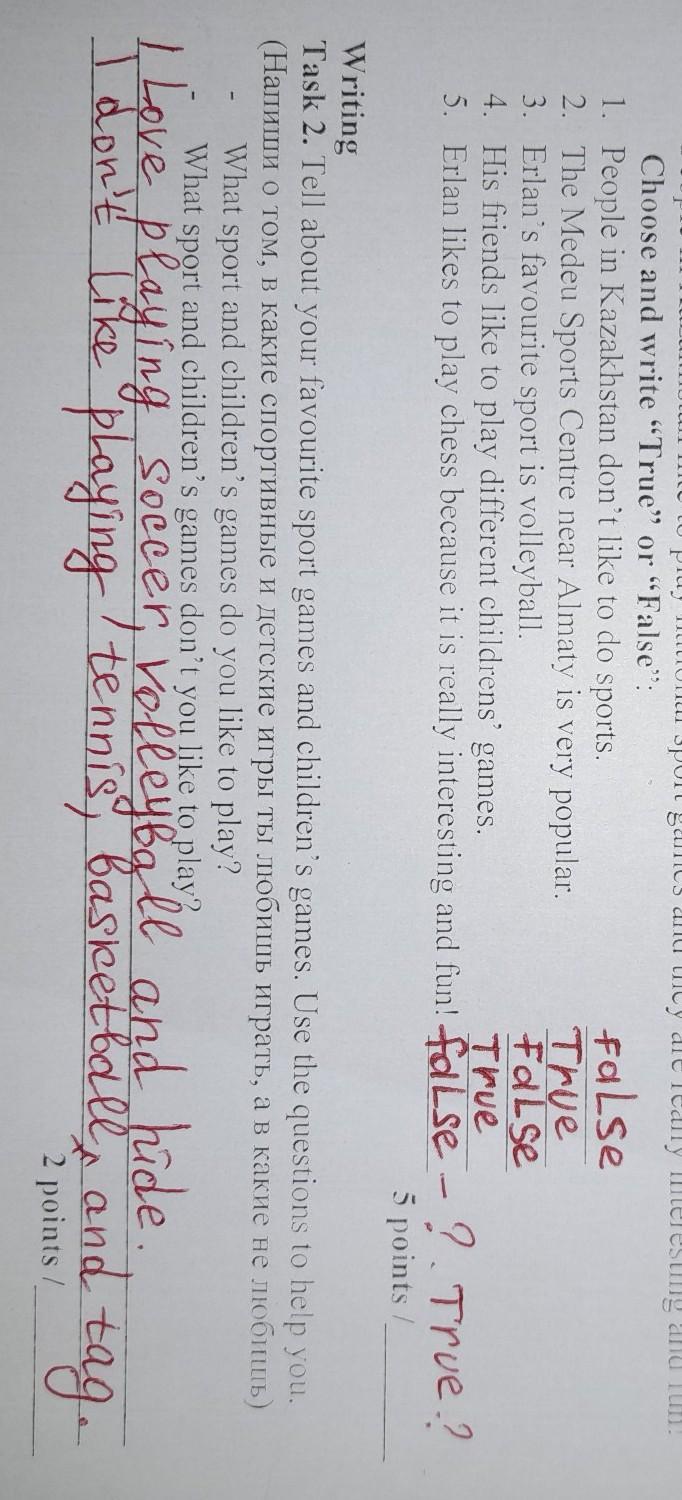 and they are really interesting and fun!
Choose and write “True” or “False”:
1. People in Kazakhstan don’t like to do sports. False
2. The Medeu Sports Centre near Almaty is very popular. True
3. Erlan’s favourite sport is volleyball. False
4. His friends like to play different childrens’ games. True
5. Erlan likes to play chess because it is really interesting and fun! false - ? . True?
5 points /
Writing
Task 2. Tell about your favourite sport games and children’s games. Use the questions to help you.
(Напиши о том, в какие спортивные и детские игры ты любишь играть, а в какие не любишь)
- What sport and children’s games do you like to play?
- What sport and children’s games don’t you like to play?
I Love playing soccer, volleyball and hide.
I don't Like playing tennis, basketball, and tag.
2 points /